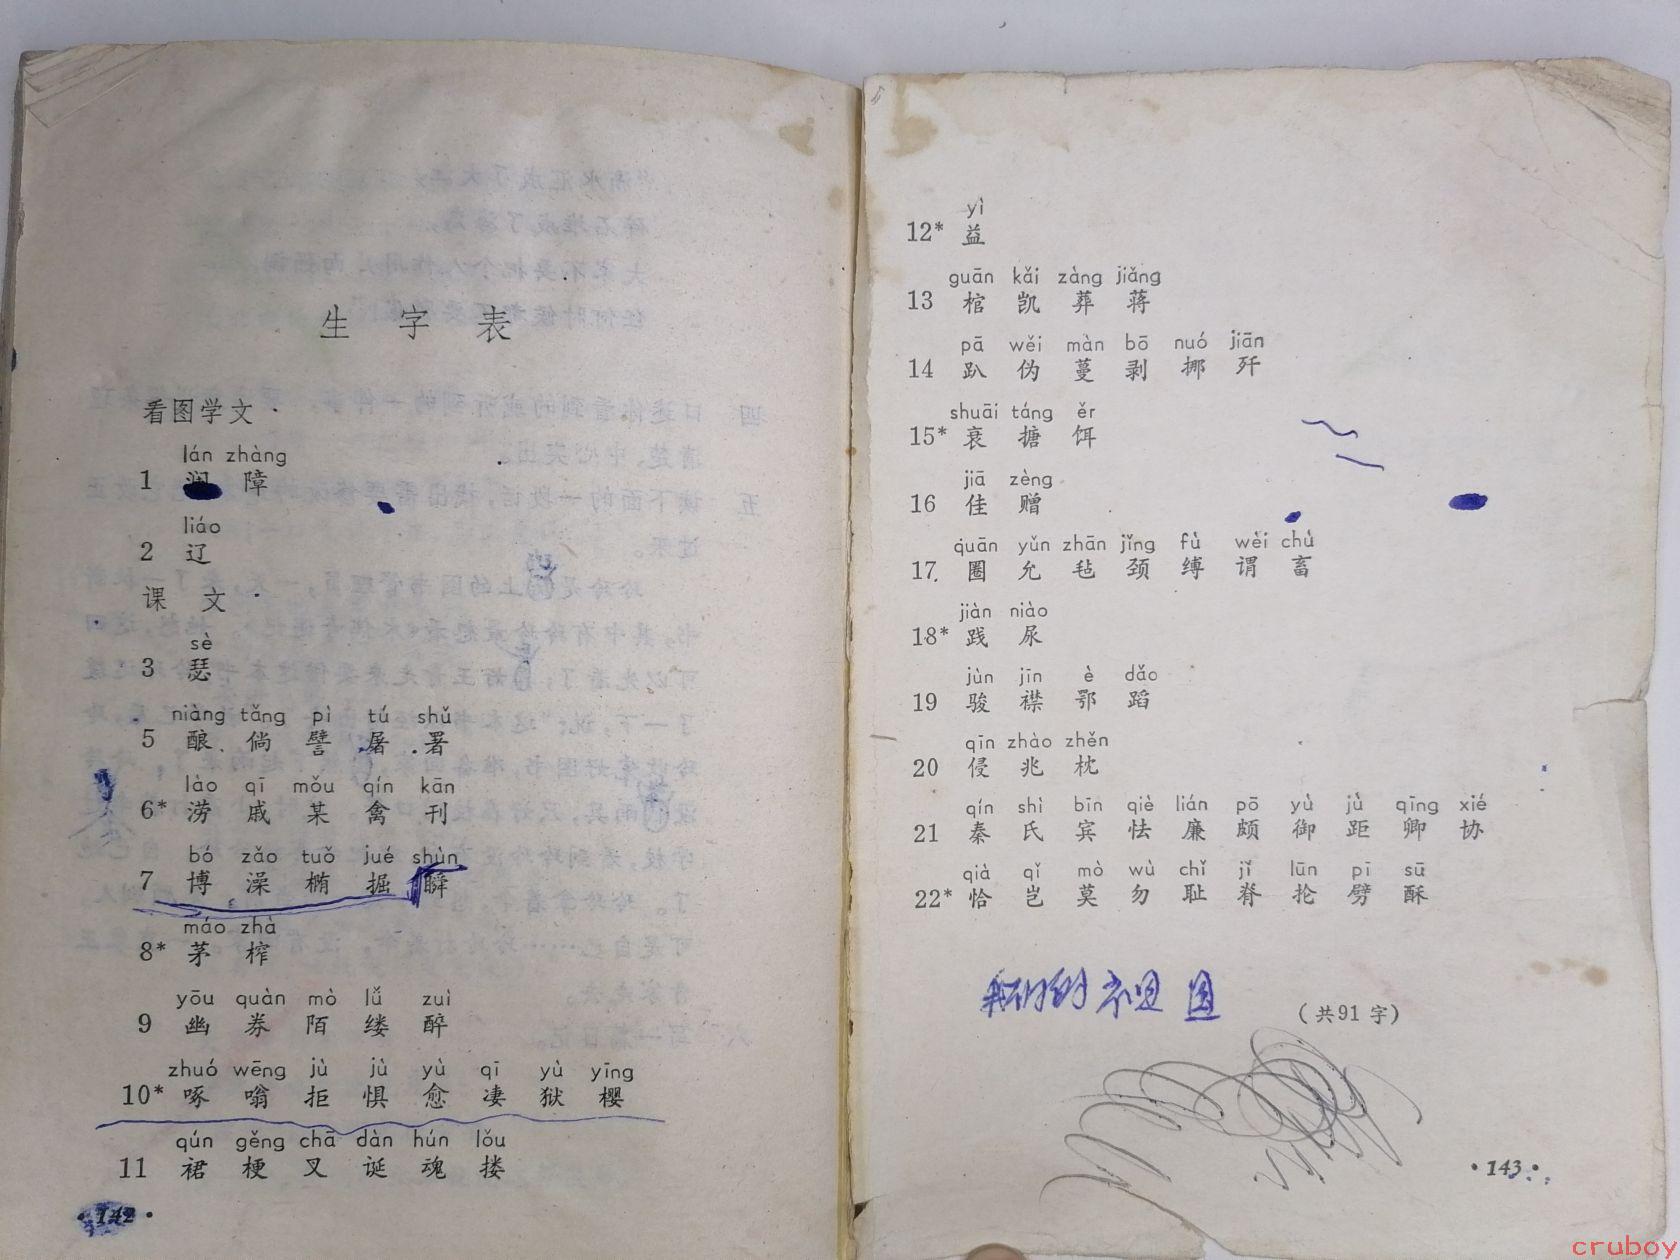 生字表
看图学文
lán zhàng
1 澜 障
liáo
2 辽
课文
sè
3 瑟
niàng tǎng pì tú shǔ
5 酿 倘 譬 屠 署
lào qī mǒu qín kān
6* 涝 戚 某 禽 刊
bó zǎo tuǒ jué shùn
7 博 澡 椭 掘 瞬
máo zhà
8* 茅 榨
yōu quàn mò lǚ zuì
9 幽 券 陌 缕 醉
zhuó wēng jù jù yù qī yù yīng
10* 啄 嗡 拒 惧 愈 凄 狱 樱
qún gěng chā dàn hún lǒu
11 裙 梗 叉 诞 魂 搂
·142·
yì
12* 益
guān kǎi zàng jiǎng
13 棺 凯 葬 蒋
pā wěi màn bō nuó jiān
14 趴 伪 蔓 剥 挪 歼
shuāi táng ěr
15* 衰 搪 饵
jiā zèng
16 佳 赠
quān yǔn zhān jǐng fù wèi chù
17 圈 允 毡 颈 缚 谓 畜
jiàn niào
18* 践 尿
jùn jīn è dǎo
19 骏 襟 鄂 蹈
qīn zhào zhěn
20 侵 兆 枕
qín shì bīn qiè lián pō yù jù qīng xié
21 秦 氏 宾 怯 廉 颇 御 距 卿 协
qià qǐ mò wù chǐ jǐ lūn pī sū
22* 恰 岂 莫 勿 耻 脊 抡 劈 酥
我们的祖国
（共91字）
·143·
cruboy